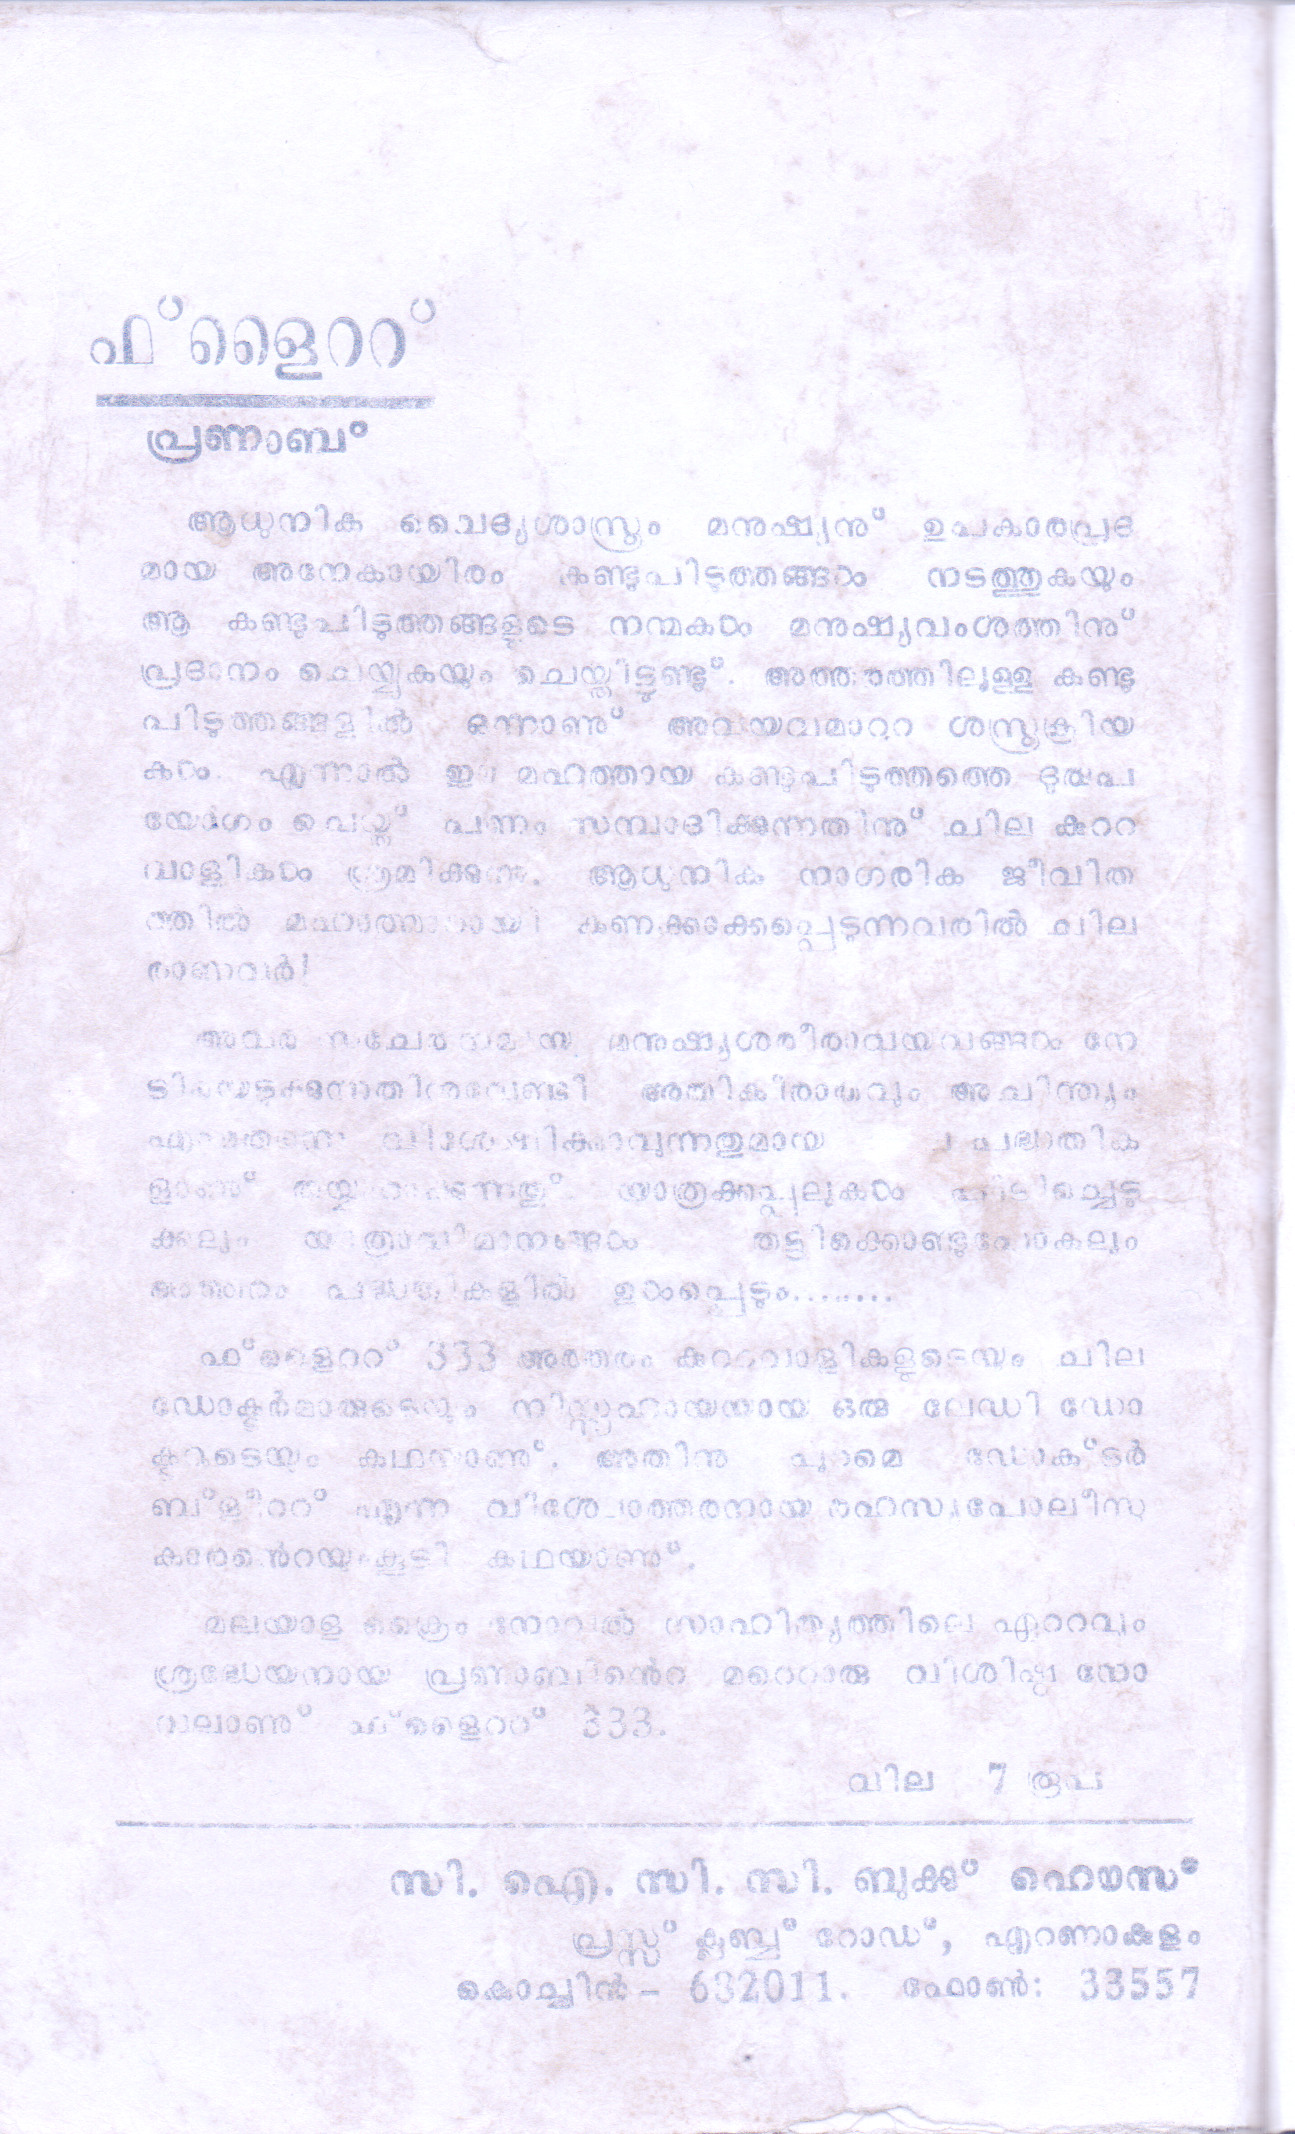 ഫ്ളൈററ്
പ്രണാബ്
ആധുനിക വൈദ്യശാസ്ത്രം മനുഷ്യനു് ഉപകാരപ്രദ
മായ അനേകായിരം കണ്ടുപിടുത്തങ്ങൾ നടത്തുകയും
ആ കണ്ടുപിടുത്തങ്ങളുടെ നന്മകൾ മനുഷ്യവംശത്തിനു്
പ്രദാനം ചെയ്യുകയും ചെയ്തിട്ടുണ്ടു്. അത്തരത്തിലുള്ള കണ്ടു
പിടുത്തങ്ങളിൽ ഒന്നാണു് അവയവമാററ ശസ്ത്രക്രിയ
കൾ. എന്നാൽ ഈ മഹത്തായ കണ്ടുപിടുത്തത്തെ ദുരുപ
യോഗം ചെയ്തു് പണം സമ്പാദിക്കുന്നതിനു് ചില കുററ
വാളികൾ ശ്രമിക്കുന്നു. ആധുനിക നാഗരിക ജീവിത
ത്തിൽ മഹാത്മാരായി കണക്കാക്കപ്പെടുന്നവരിൽ ചില
രാണവർ!
അവർ മനുഷ്യശരീരാവയവങ്ങൾ നേ
അതികിരാതവും അചിന്ത്യം
വിശേഷിക്കാവുന്നതുമായ പദ്ധതിക
ളാണു് തയ്യാറാക്കുന്നതു്. യാത്രക്കപ്പലുകൾ പിടിച്ചെടു
ക്കലും യാത്രാവിമാനങ്ങൾ തട്ടിക്കൊണ്ടുപോകലും
പദ്ധതികളിൽ ഉൾപ്പെടും........
ഫ്ളൈററ് 333 അത്തരം കുററവാളികളുടെയും ചില
ഡോക്ടർമാരുടെയും നിസ്സഹായയായ ഒരു ലേഡി ഡോ
ക്ടറുടെയും കഥയാണു്. അതിനു പുറമെ ഡോക്ടർ
ബ്ളീററ് എന്ന വിശ്വോത്തരനായ രഹസ്യപോലീസു
കാരൻെറയുംകൂടി കഥയാണു്.
മലയാള ക്രൈം നോവൽ സാഹിത്യത്തിലെ ഏററവും
ശ്രദ്ധേയനായ പ്രണാബിൻെറ മറെറാരു വിശിഷ്ട നോ
വലാണു് ഫ്ളൈററ് 333.
വില 7 രൂപ
സി. ഐ. സി. സി. ബുക്കു് ഹൌസ്
പ്രസ്സ് ക്ലബ്ബ് റോഡ്, എറണാകുളം
കൊച്ചിൻ – 682011. ഫോൺ: 33557